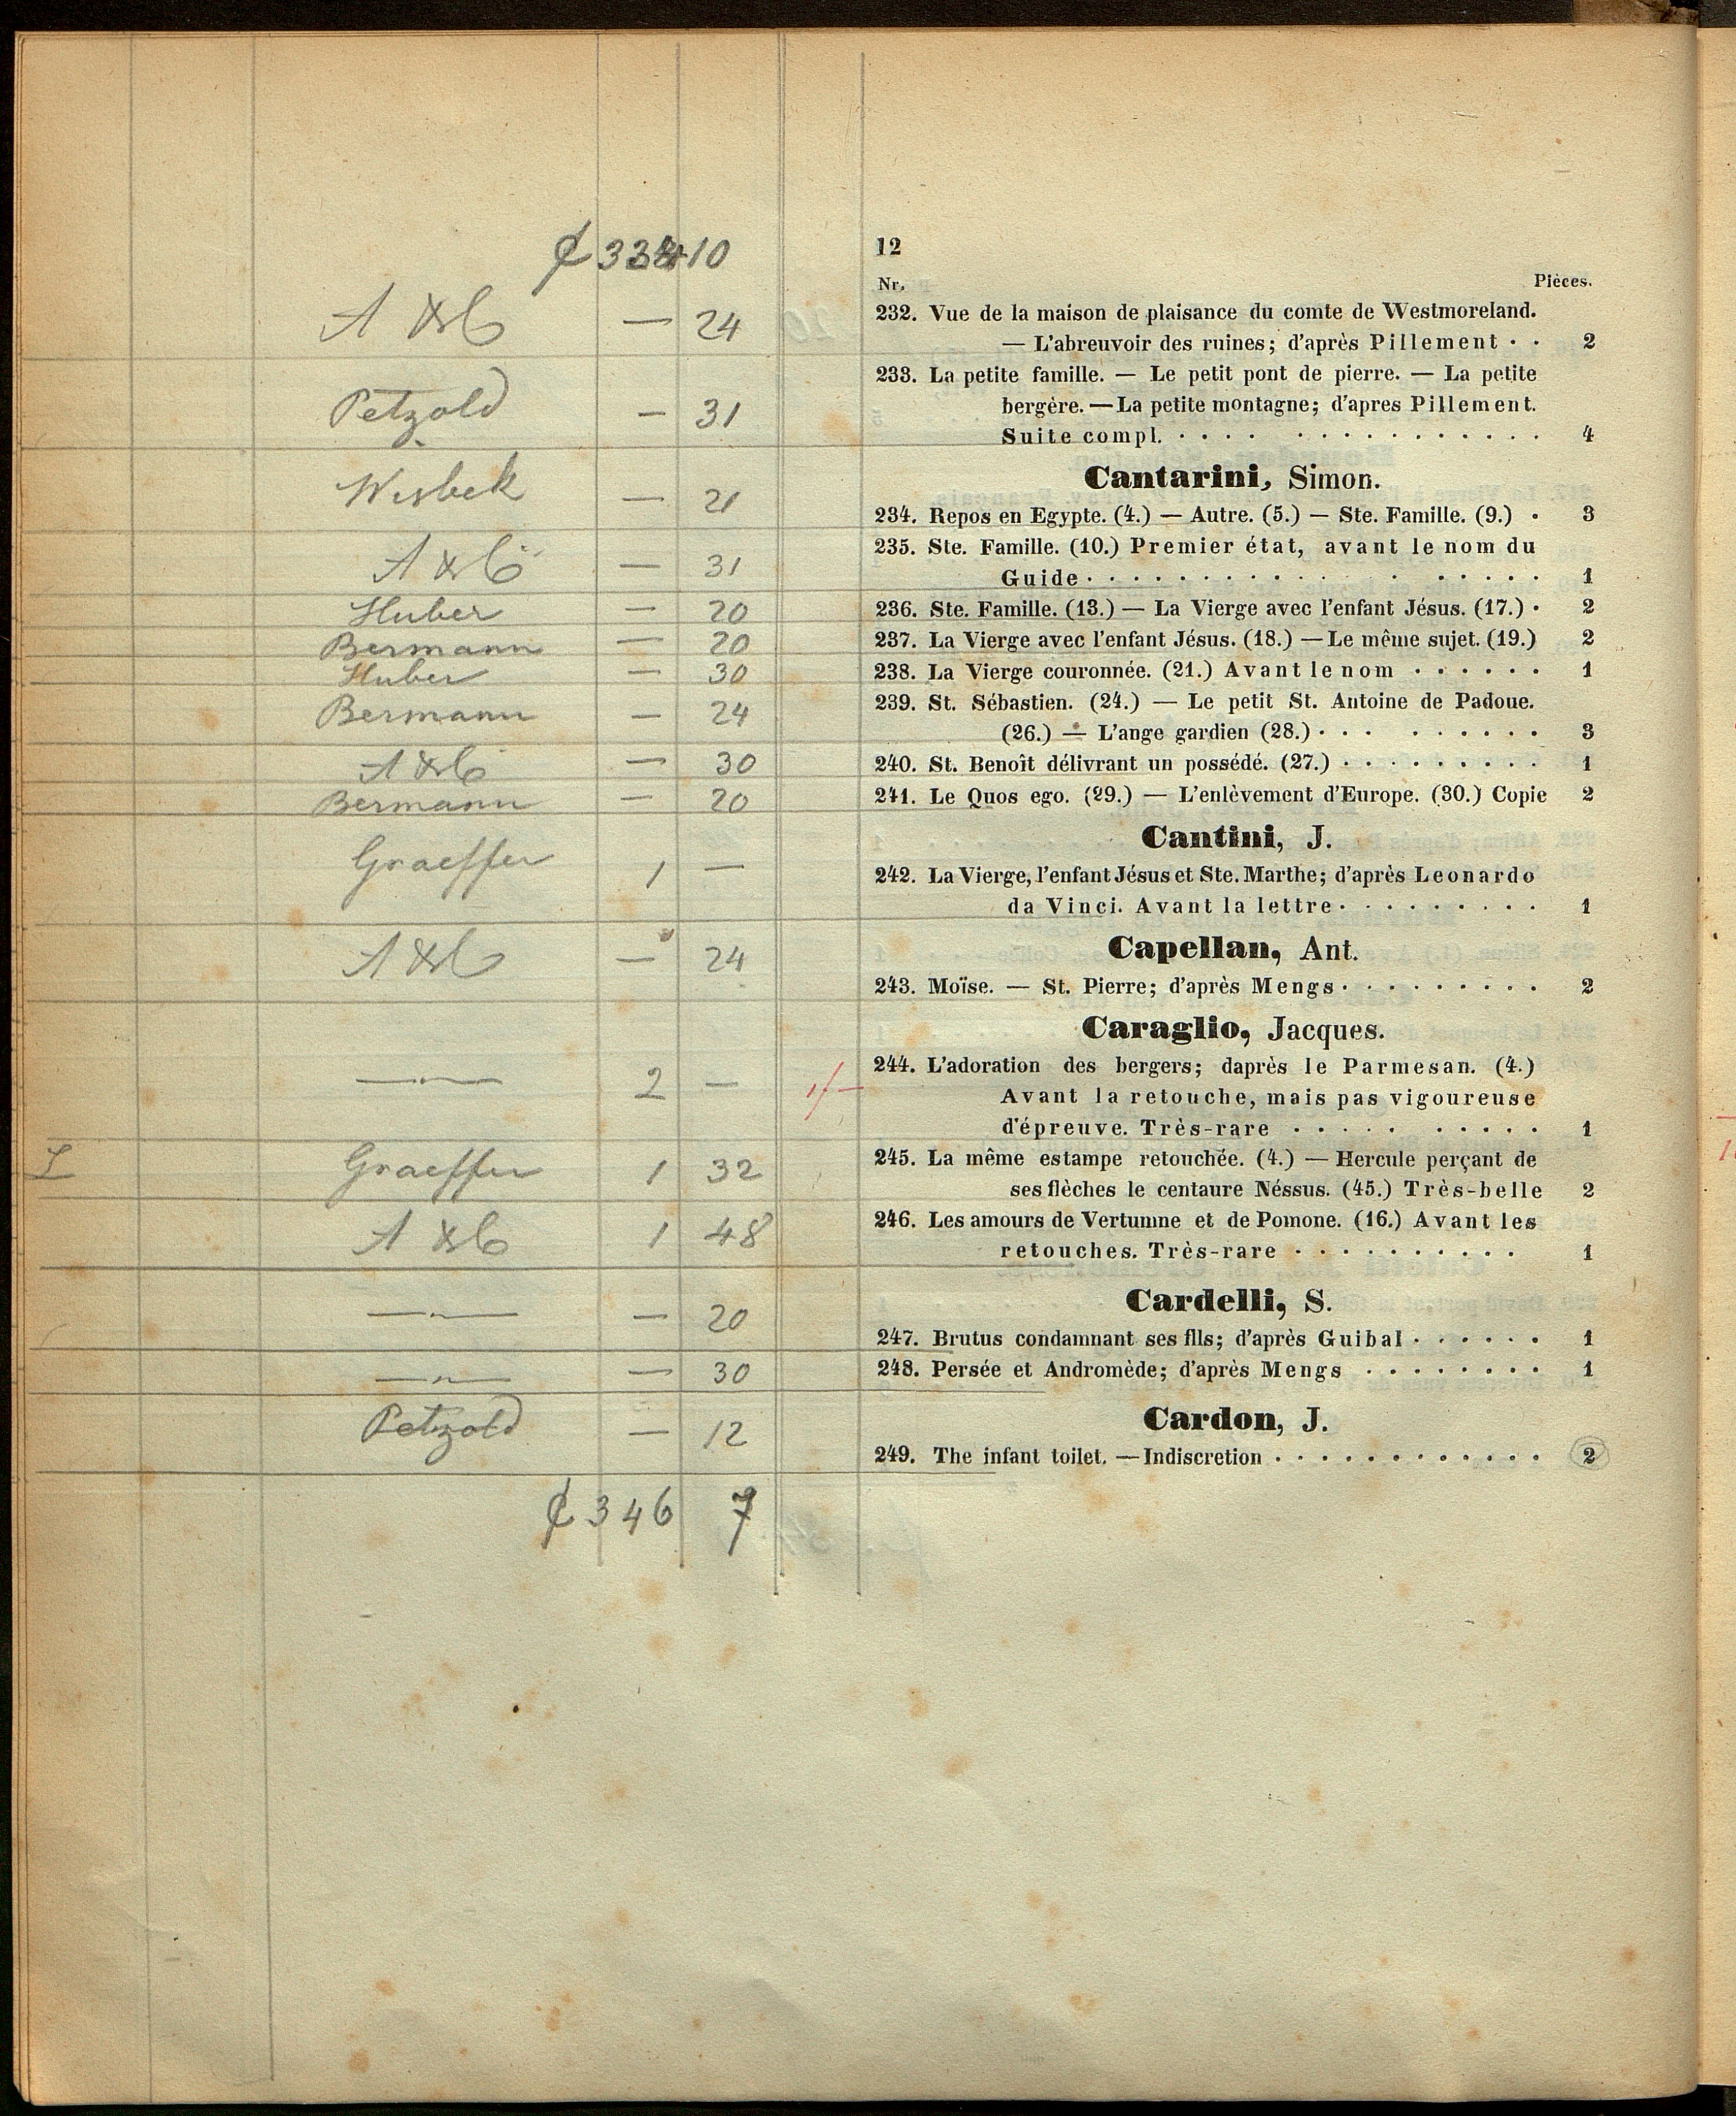 ₡ 334 10
A & C — 24
Petzold — 31
Wisbek — 21
A & C — 31
Huber — 20
Bermann — 20
Huber — 30
Bermann — 24
A & C — 30
Bermann — 20
Graeffer 1 —
A & C — 24
—"— 2 —
Graeffer 1 32
A & C 1 48
—"— — 20
—"— — 30
Petzold — 12
₡ 346 7
1/—
12
Nr. Pièces.
232. Vue de la maison de plaisance du comte de Westmoreland.
— L'abreuvoir des ruines; d'après Pillement · · 2
233. La petite famille. — Le petit pont de pierre. — La petite
bergère. — La petite montagne; d'apres Pillement.
Suite compl. · · · · · · · · · · · · · · · 4
Cantarini, Simon.
234. Repos en Egypte. (4.) — Autre. (5.) — Ste. Famille. (9.) · 3
235. Ste. Famille. (10.) Premier état, avant le nom du
Guide · · · · · · · · · · · · · · 1
236. Ste. Famille. (13.) — La Vierge avec l'enfant Jésus. (17.) · 2
237. La Vierge avec l'enfant Jésus. (18.) — Le même sujet. (19.) 2
238. La Vierge couronnée. (21.) Avant le nom · · · · · · 1
239. St. Sébastien. (24.) — Le petit St. Antoine de Padoue.
(26.) — L'ange gardien (28.) · · · · · · · · · 3
240. St. Benoît délivrant un possédé. (27.) · · · · · · · · · 1
241. Le Quos ego. (29.) — L'enlèvement d'Europe. (30.) Copie 2
Cantini, J.
242. La Vierge, l'enfant Jésus et Ste. Marthe; d'après Leonardo
da Vinci. Avant la lettre · · · · · · · · · 1
Capellan, Ant.
243. Moïse. — St. Pierre; d'après Mengs · · · · · · · · · 2
Caraglio, Jacques.
244. L'adoration des bergers; daprès le Parmesan. (4.)
Avant la retouche, mais pas vigoureuse
d'épreuve. Très-rare · · · · · · · · · · 1
245. La même estampe retouchée. (4.) — Hercule perçant de
ses flèches le centaure Néssus. (45.) Très-belle 2
246. Les amours de Vertumne et de Pomone. (16.) Avant les
retouches. Très-rare · · · · · · · · · · 1
Cardelli, S.
247. Brutus condamnant ses fils; d'après Guibal · · · · · · 1
248. Persée et Andromède; d'après Mengs · · · · · · · · 1
Cardon, J.
249. The infant toilet. — Indiscretion · · · · · · · · · · · · 2